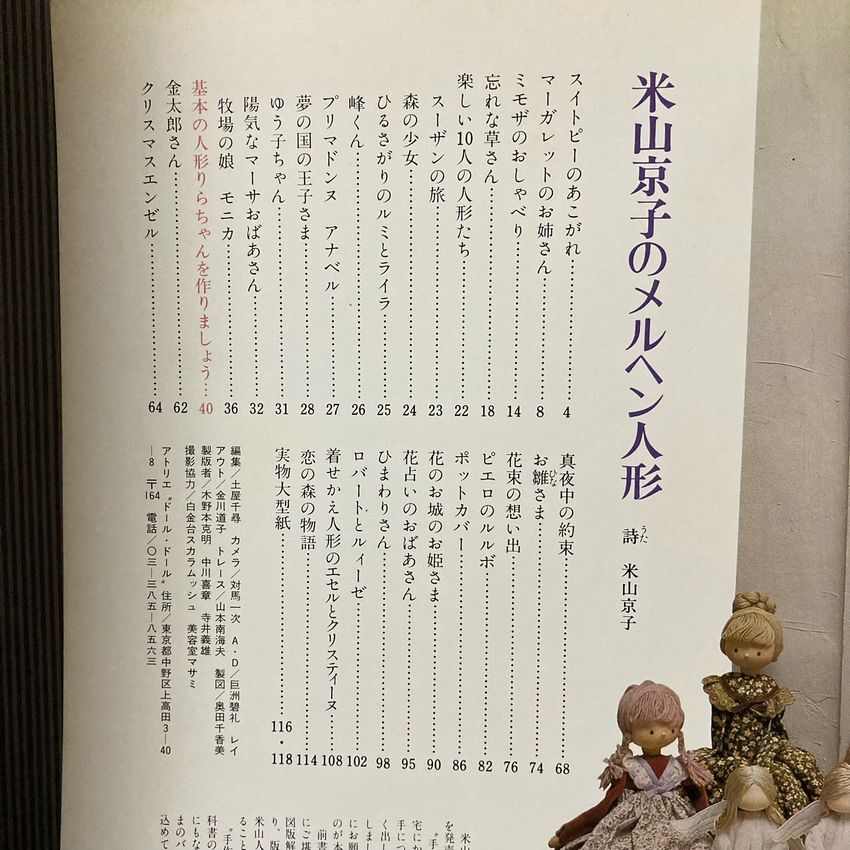 米山京子のメルヘン人形
詩 米山京子
うた
スイトピーのあこがれ 4
マーガレットのお姉さん 8
ミモザのおしゃべり 14
忘れな草さん 18
楽しい10人の人形たち 22
スーザンの旅 23
森の少女 24
ひるさがりのルミとライラ 25
峰くん 26
プリマドンヌ アナベル 27
夢の国の王子さま 28
ゆう子ちゃん 31
陽気なマーサおばあさん 32
牧場の娘 モニカ 36
基本の人形りらちゃんを作りましょう 40
金太郎さん 62
クリスマスエンゼル 64
真夜中の約束 68
お雛さま 74
ひな
花束の想い出 76
ピエロのルルボ 82
ポットカバー 86
花のお城のお姫さま 90
花占いのおばあさん 95
ひまわりさん 98
ロバートとルィーゼ 102
着せかえ人形のエセルとクリスティーヌ 108
恋の森の物語 114
実物大型紙 116・118
編集/土屋千尋 カメラ/対馬一次 A・D/巨洲碧礼 レイ
アウト/金川道子 トレース/山本南海夫 製図/奥田千香美
製版者/木野本克明 中川喜章 寺井義雄
撮影協力/白金台スカラムッシュ 美容室マサミ
アトリエ〝ドール・ドール〟住所/東京都中野区上高田3―40
―8 〒164 電話/〇三―三八五―八五六三